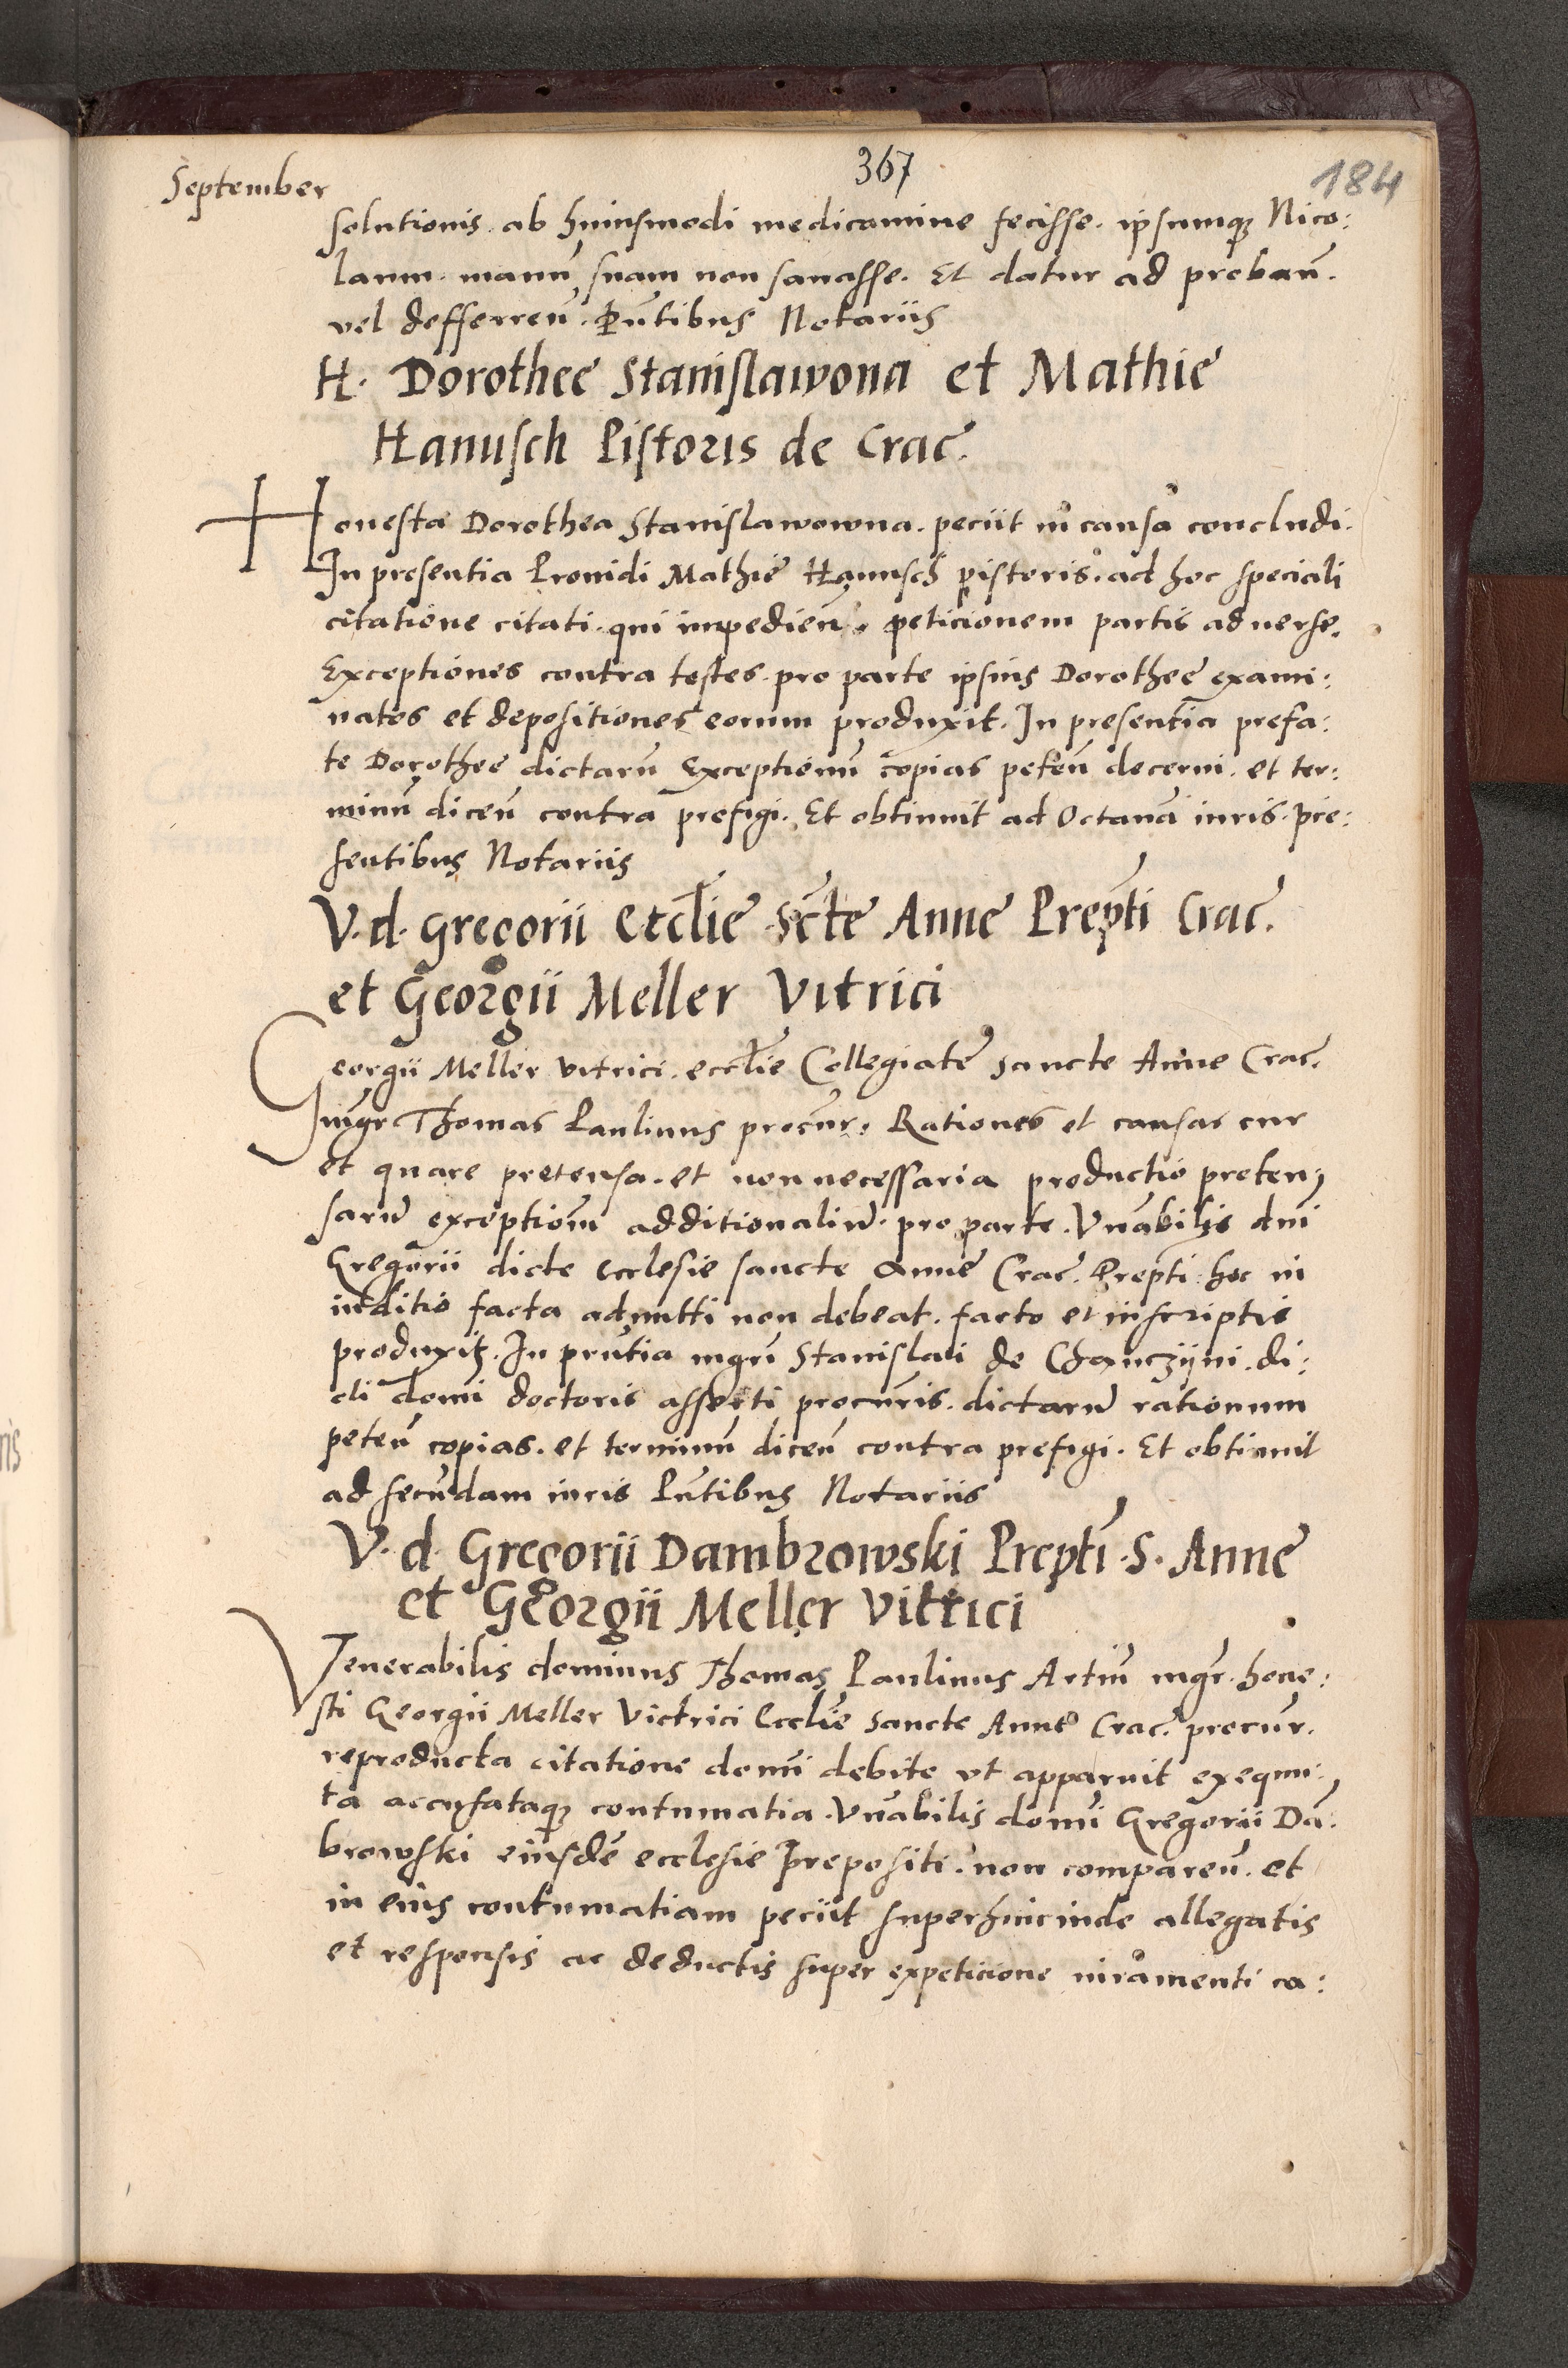 September
367
184
solutionis. ab huiusmodi medicamine fecisse. ipsumq3 Nico:
laum. manū suam non sanasse. Et datur ad probañ.
vel defferreñ. Pñtibus Notariis
H. Dorothee Stanislawona et Mathie
Hanusch Pistoris de Crac.
Honesta Dorothea Stanislawowna. peciit in causa concludi.
In presentia Providi Mathie Hanusch pistoris. ad hoc speciali
citatione citati. qui impedieñ. peticionem partis adverse.
Exceptiones contra testes. pro parte ipsius Dorothee exami:
natos et depositiones eorum produxit. In presentia prefa:
te Dorothee dictarū Exceptionū copias peteñ decerni. et ter:
minū diceñ contra prefigi. Et obtinuit ad Octavā iuris. pre:
sentibus Notariis
V. d. Gregorii Ecclie Scte Anne Prepti Crac.
et Georgii Meller Vitrici
Georgii Meller vitrici. ecclie Collegiate Sancte Anne Crac.
mgr Thomas Paulinus procur. Rationes et causas cur
et quare pretensa. et non necessaria productio preten,
sarū exceptionū additionaliū. pro parte. Vnabilis dni
Gregorii dicte Ecclesie sancte Anne Crac. Prepti. hoc in
iuditio facta admitti non debeat. facto et in scriptis
produxit. In pntia mgri Stanislai de Chanczyni. di:
cti domi doctoris asserti procuris. dictarū rationum
peteñ copias. et terminū diceñ contra prefigi. Et obtinuit
ad secundam iuris Pñtibus Notariis
V. d. Gregorii Dambrowski Prepti. S. Anne
et Georgii Meller Vittrici
Venerabilis dominus Thomas Paulinus Artiū mgr. hone:
sti Georgii Meller Victrici Ecclie Sancte Anne Crac. procur.
reproducta citatione domi debite vt apparuit exequu:,
ta accusataq3 contumatia. Vnabilis domi Gregorii Dā:
browski eiusdē ecclesie prepositi. non compareñ. et
in eius contumatiam peciit super hincinde allegatis
et responsis ac deductis super expeticione iuramenti ca: